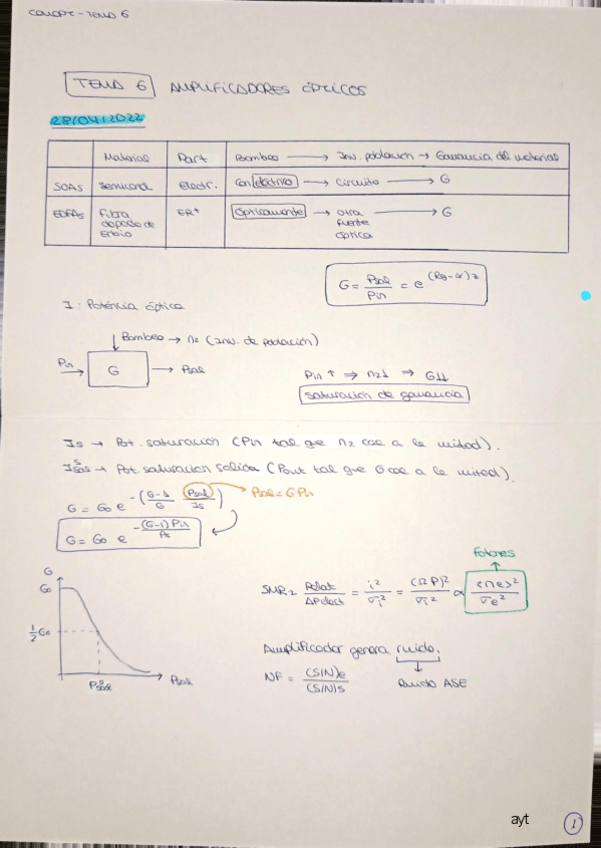 CONOPT - TEMA 6
TEMA 6 AMPLIFICADORES ÓPTICOS
28/04/2022
Material Part Bombeo → Inv. población → Ganancia del material
SOAs Semicond. Electr. Con eléctrico → Circuito → G
EDFAs Fibra dopada de Erbio ER+ Ópticamente → otra fuente óptica → G
G = Psal/Pin = e^(Rg-α)z
I: Potencia óptica
Bombeo → n2 (Inv. de población)
Pin → G → Psal
Pin ↑ ⇒ n2↓ ⇒ G↓↓
saturación de ganancia
Is → Pot. saturación (Pin tal que n2 cae a la mitad).
→ Pot. saturación salida (Pout tal que G cae a la mitad).
G = Go e^-(G-1/G Psal/Is) Psal = G Pin
G = Go e^-(G-1)Pin/Ps
Fotones
SNR = = i²/σi² = (RP)²/σi² ∝ <ne>²/σe²
G
Go
1/2 Go
Psal
Amplificador genera ruido.
NF = (S/N)e/(S/N)s Ruido ASE
ayt
1